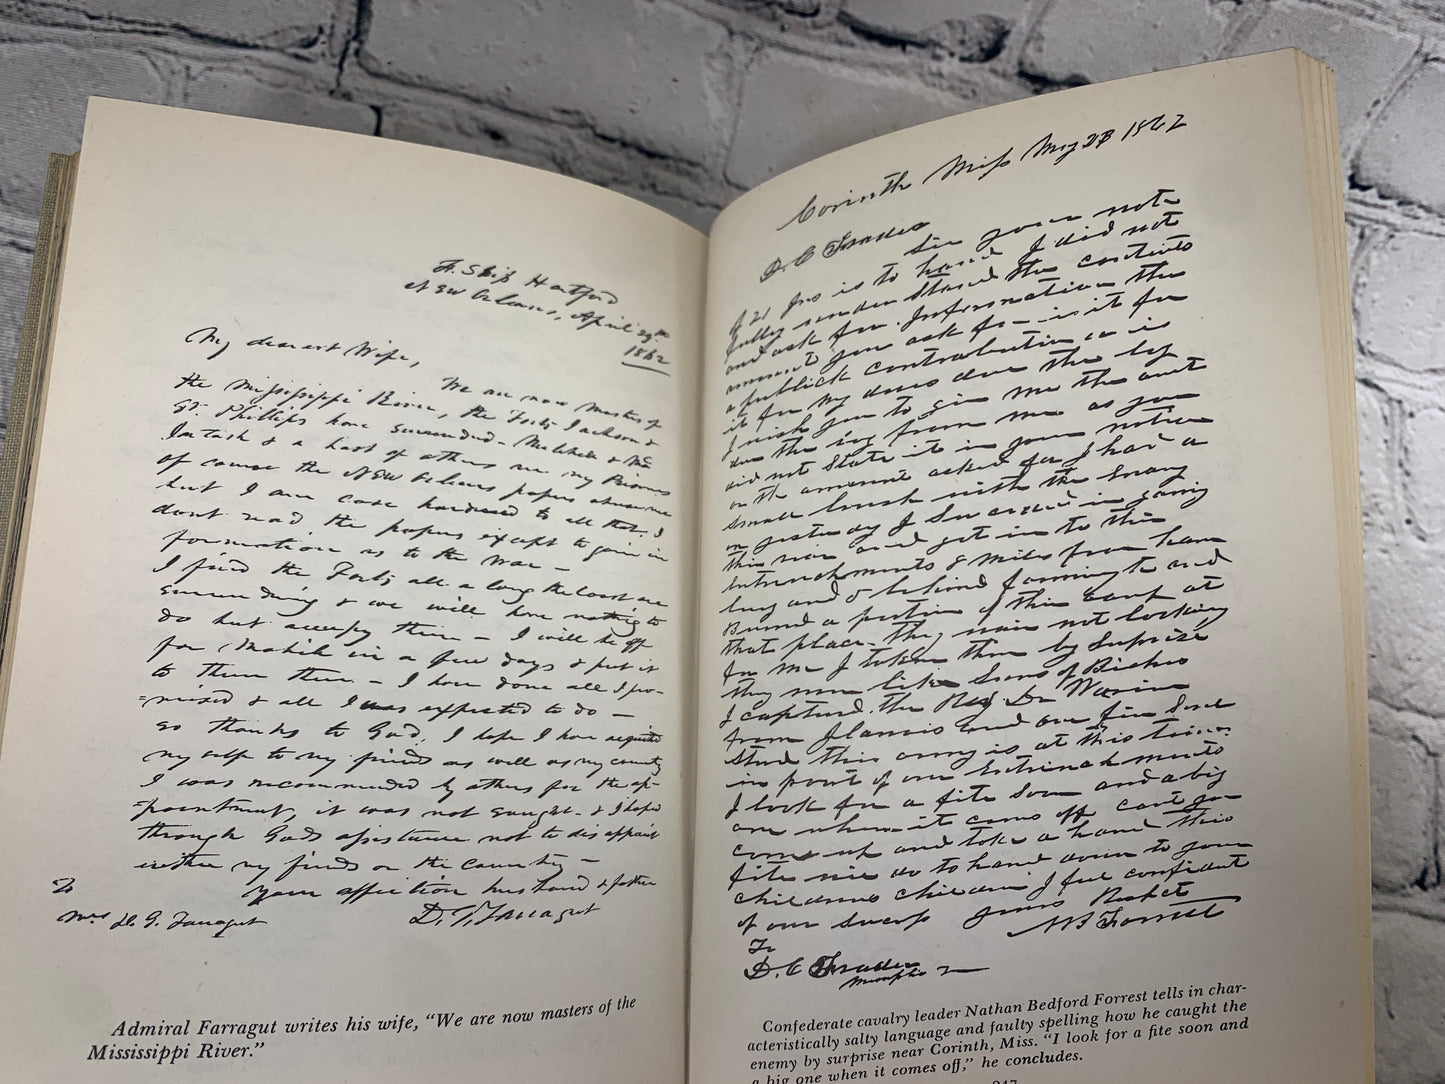 F. Ship Hartford
New Orleans, April 29th
1862
My dearest Wife,
We are now masters of
the Mississippi River, the Forts Jackson &
St. Phillips have surrendered - Mitchell & Mc
Intosh & a host of others are my Prisoners
of course the New Orleans papers abuse me
but I am case hardened to all that. I
dont read the papers except to gain in
formation as to the War -
I find the Forts all along the Coast are
surrendering & we will have nothing to
do but occupy them - I will be off
for Mobile in a few days & put it
to them there - I have done all I pro-
=mised & all I was expected to do -
so thanks to God, I hope I have acquitted
my self to my friends as well as my country
I was recommended by others for the ap-
=pointment, it was not sought - & I hope
through Gods assistance not to disappoint
either my friends or the Country -
Your affection husband & father
D. G. Farragut
To
Mrs D. G. Farragut
Admiral Farragut writes his wife, "We are now masters of the
Mississippi River."
Corinth Miss May 23 1862
D. C. Trader
Sir your note
of 21 Ins is to hand I did not
fully understand the contents
and ask for Information the
amount you ask for is it for
a publick contrabution or is
it for my dues due the log
I wish you to give me the amt
due the log from me as you
did not State it in your notice
or the amount asked for I had a
small brush with the Enamy
on yesterday I Suceeded in gaining
thir rear and got in to thir
entrenchments 8 miles from ham
burg and 5 behind farmington and
Burned a portion of thir camp at
that place they ware not looking
for me I taken them by Suprise
they run like Suns of Biches
I captured the Rev Dr Warin
from Ilanois and one fin Sord
this army is at this time
in front of our Entrenchments
I look for a fite soon and a big
one when it comes off cant you
come up and take a hand this
fite will do to hand down to your
childrens children I feel confident
of our sucess yours Respct
N B Forrest
To
D. C. Trader
Memphis
Confederate cavalry leader Nathan Bedford Forrest tells in char-
acteristically salty language and faulty spelling how he caught the
enemy by surprise near Corinth, Miss. "I look for a fite soon and
a big one when it comes off," he concludes.